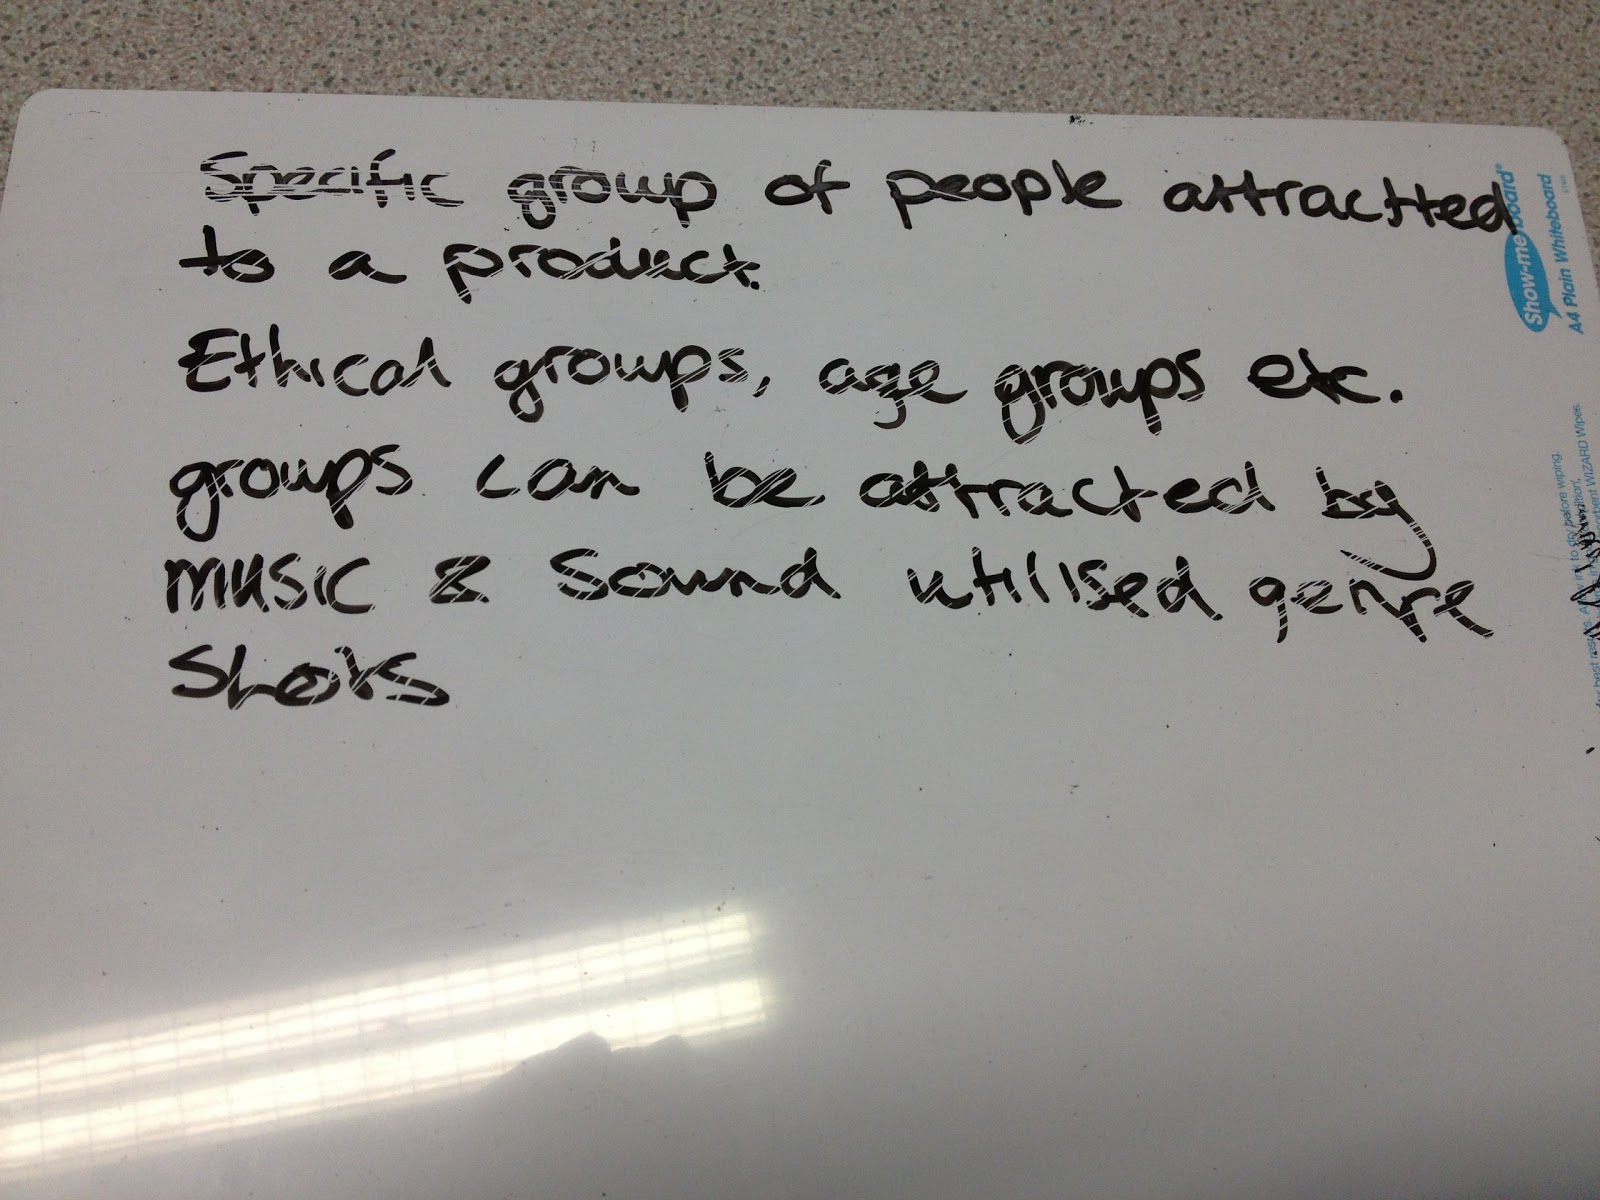 Specific group of people attractted
to a product.
Ethical groups, age groups etc.
groups can be attracted by
music & sound utilised genre
Shots
Show-me board®
A4 Plain Whiteboard